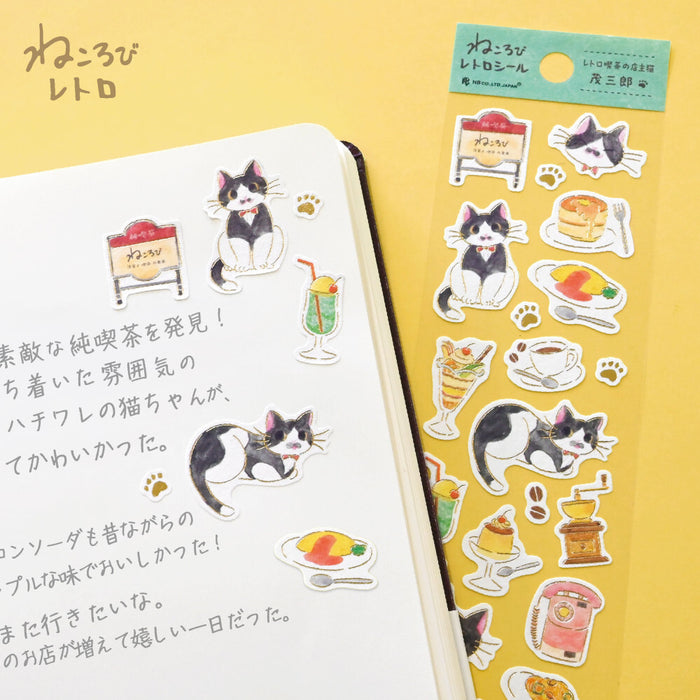 ねころび
レトロ
ねころび
レトロシール
NB CO.,LTD. JAPAN
レトロ喫茶の店主猫
茂三郎
純喫茶
ねころび
純喫茶
ねころび
素敵な純喫茶を発見！
ち着いた雰囲気の
ハチワレの猫ちゃんが、
てかわいかった。
ロンソーダも昔ながらの
プルな味でおいしかった！
また行きたいな。
のお店が増えて嬉しい一日だった。